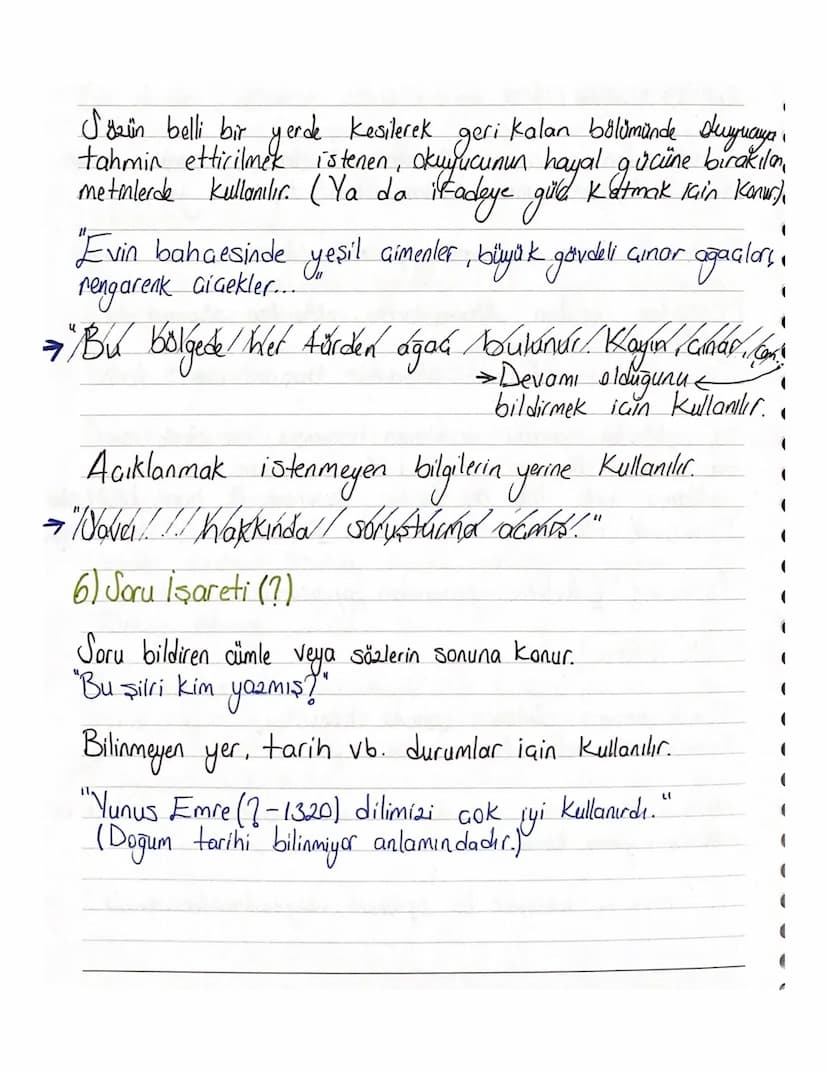 Sözün belli bir yerde kesilerek geri kalan bölümünde okuyucaya
tahmin ettirilmek istenen, okuyucunun hayal gücüne bırakılan,
metinlerde kullanılır. (Ya da ifadeye güç katmak için konur).
"Evin bahçesinde yeşil çimenler, büyük gövdeli çınar ağaçları,
rengarenk çiçekler..."
→"Bu bölgede her türden ağaç bulunur. Kayın, çınar, çam
→Devamı olduğunu
bildirmek için kullanılır.
Açıklanmak istenmeyen bilgilerin yerine kullanılır.
→" hakkında soruşturma açmış."
6) Soru İşareti (?)
Soru bildiren cümle veya sözlerin sonuna konur.
"Bu şiiri kim yazmış?"
Bilinmeyen yer, tarih vb. durumlar için kullanılır.
"Yunus Emre (?-1320) dilimizi çok iyi kullanırdı."
(Doğum tarihi bilinmiyor anlamındadır.)